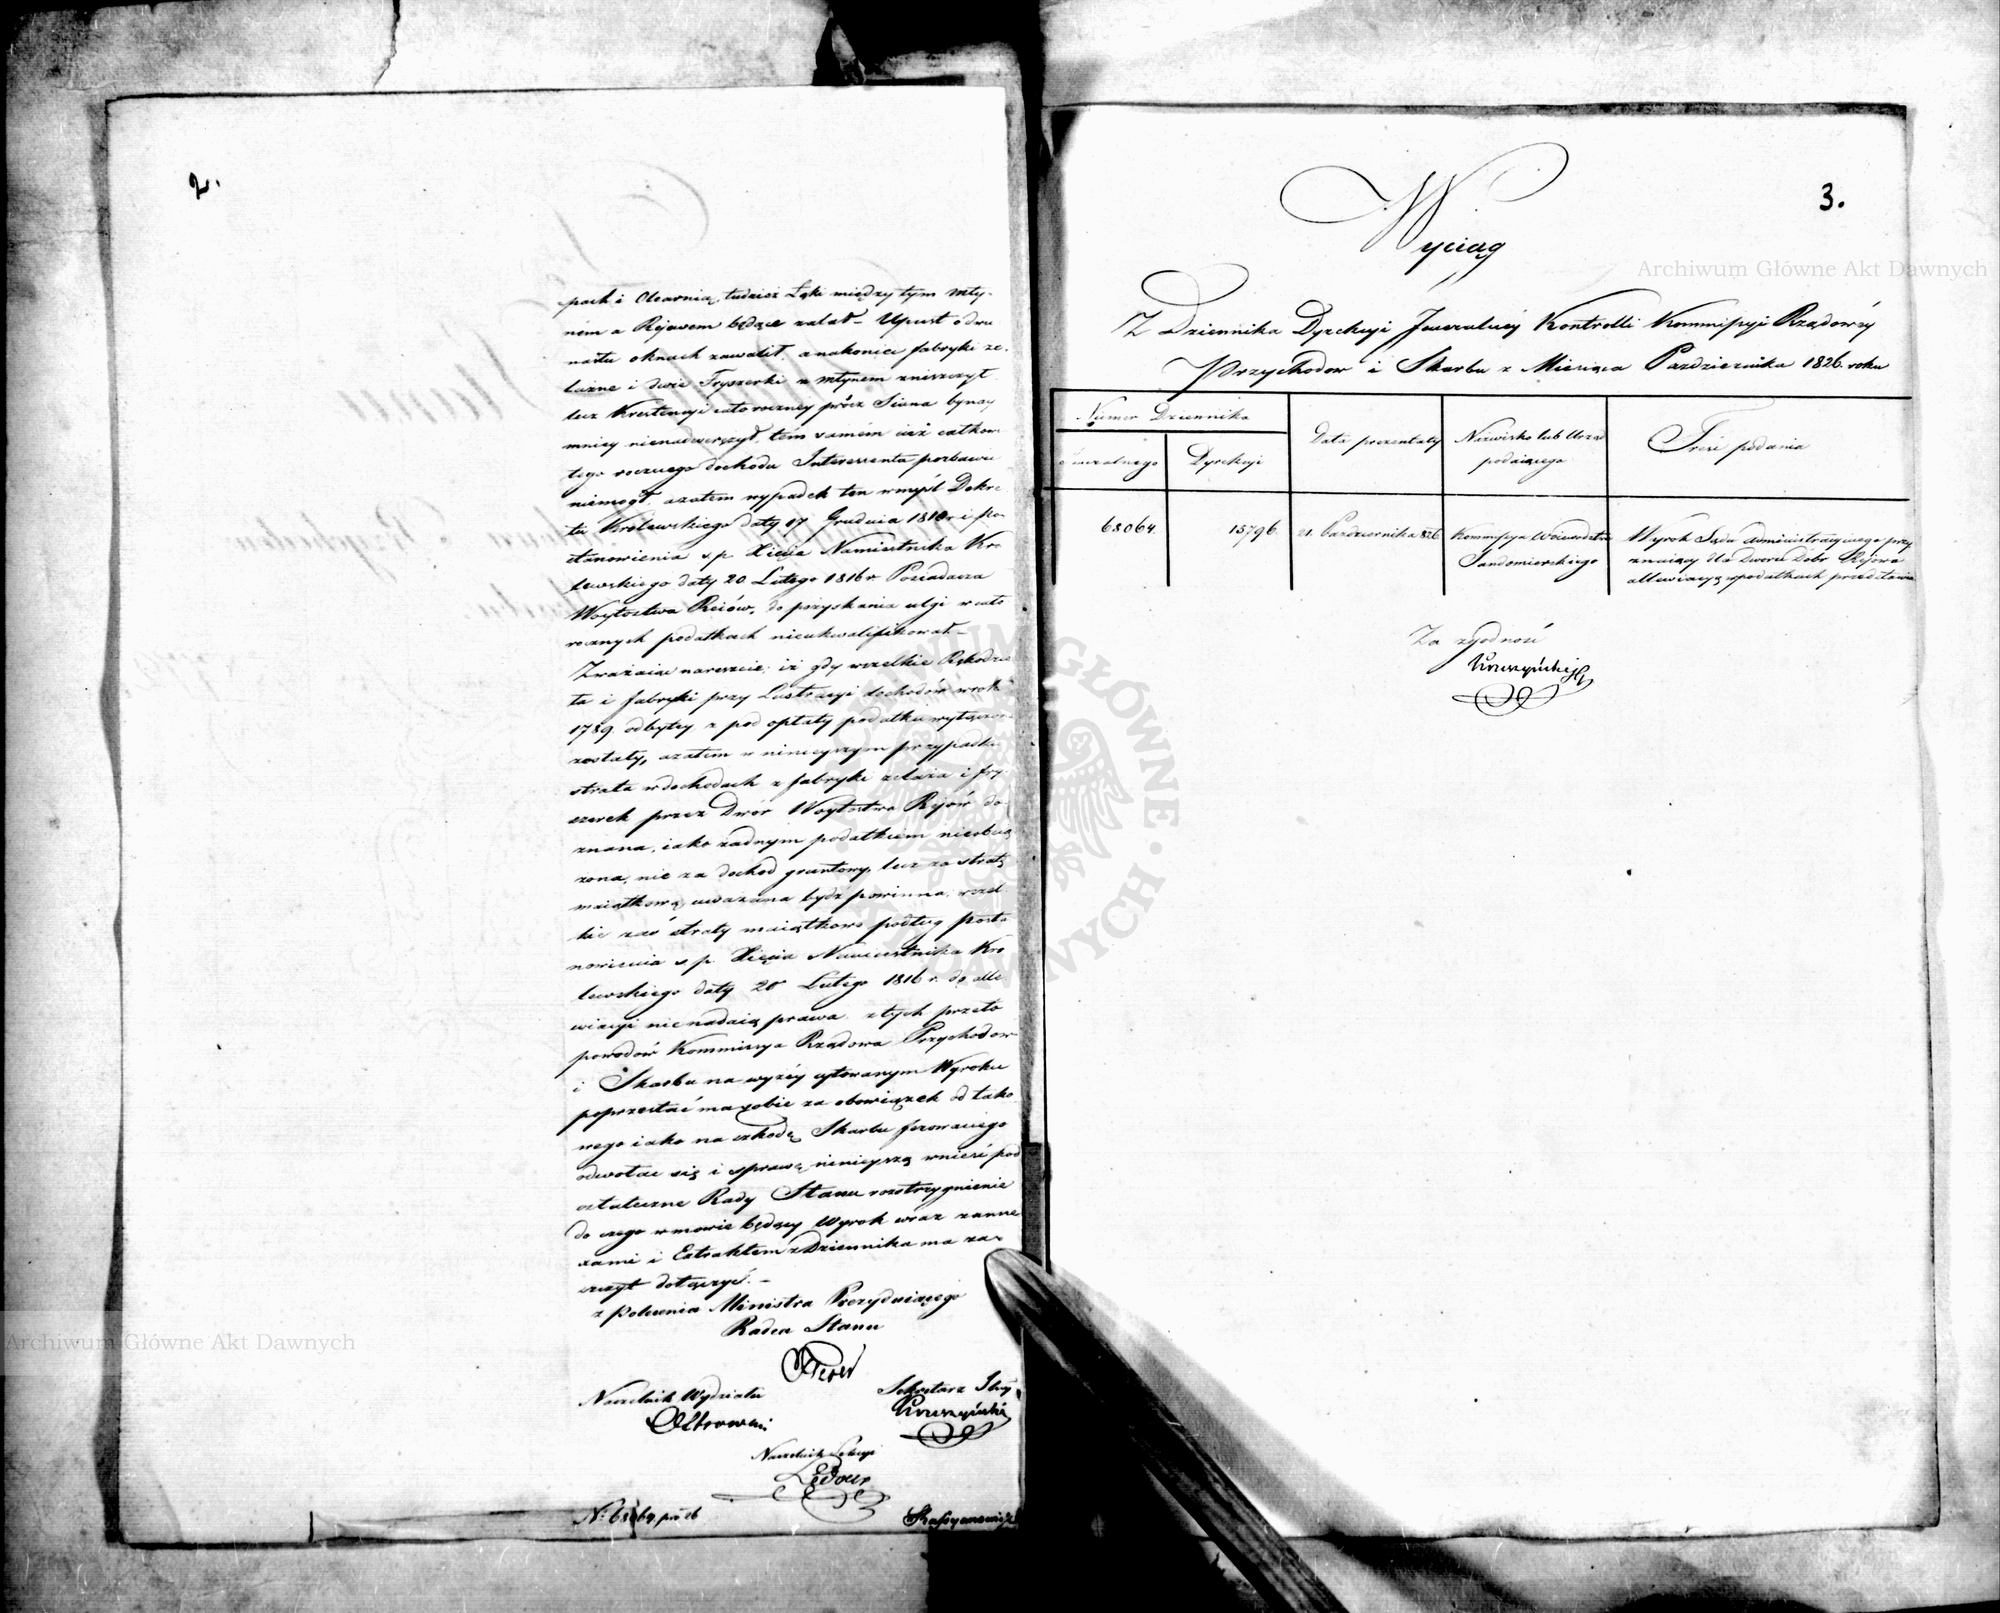 2.
pach i Olearnią, tudzież Łąki między tym Mły-
nem a Rejowem będące zalał – Upust o dwu
nastu oknach zawalił, a nakoniec fabryki że-
lazne i dwie Fryszerki z młynem zniszczył
lecz Krestencyi całoroczney prócz Siana bynay
mniey nienadwerężył, tém samém iuż całkow
tego rocznego dochodu Interessenta pozbawić
niemógł a zatem wypadek ten w myśl Dekre
tu Królewskiego daty 17 Grudnia 1810 r. i po
stanowienia s.p. Xięcia Namiestnika Kró
lewskiego daty 20 Lutego 1816 r. Posiadacza
Woytostwa Reiów, do pozyskania ulgi w cało
rocznych podatkach nieukwalifikował. –
Zważaiąc nareszcie, iż gdy wszelkie Rękodzie
ła i fabryki przy Lustracyi dochodów w roku
1789 odbytey z pod opłaty podatku wyłączone
zostały, a zatem w ninieyszym przypadku
strata w dochodach z fabryki żelaza i fry-
szerek przez Dwór Woytostwa Rejów do-
znana, iako żadnym podatkiem nieobcią
żona, nie za dochód gruntowy, lecz za stratę
maiątkową uważana bydź powinna, wszel
kie zaś straty maiątkowe podług posta
nowienia s.p. Xięcia Namiestnika Kró
lewskiego daty 20 Lutego 1816 r. do alle
wiacyi nienadaią prawa. z tych przeto
powodów Kommissya Rządowa Przychodów
i Skarbu na wyżéy cytowanym Wyroku
poprzestać ma sobie za obowiązek od tako
wego iako na szkodę Skarbu ferowanego
odwołać się i sprawę ninieyszą wnieść pod
ostateczne Rady Stanu rozstrzygnienie
do czego w mowie będący Wyrok wraz z anne
xami i Extraktem z Dziennika ma za-
szczyt dołączyć. –
z Polecenia Ministra Prezyduiącego
Radca Stanu
Naczelnik Wydziału
Sekretarz Jlny
Kruszyński
Naczelnik Sekcyi
Nº 68064
3.
Wyciąg
Z Dziennika Dyrekcyi Jeneralnéy Kontrolli Kommissyi Rządowéy
Przychodów i Skarbu z Miesiąca Października 1826. roku
Numer Dziennika
Jeneralnego
Dyrekcyi
Data prezentaty
Nazwisko lub Urząd
podaiącego
Treść podania
68064.
15796.
21. Października 826.
Kommissya Woiewództwa
Sandomierskiego
Wyrok Sądu Administracyinego przy
znaiący dla Dworu Dóbr Rejowa
allewiacyą w podatkach przedstawia
Za zgodność
Kruszyński
Archiwum Główne Akt Dawnych
Archiwum Główne Akt Dawnych
ARCHIWUM GŁÓWNE AKT DAWNYCH